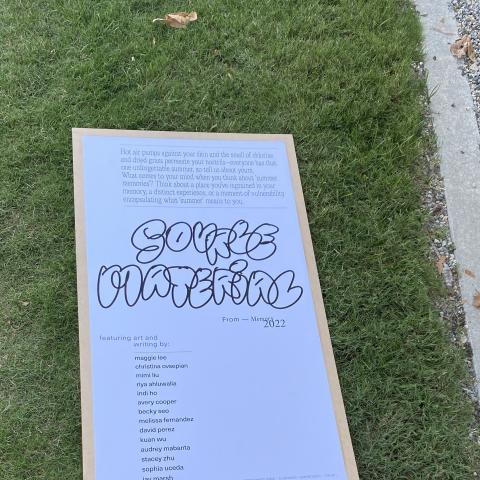 Hot air pumps against your skin and the smell of chlorine
and dried grass permeate your nostrils—everyone has that
one unforgettable summer, so tell us about yours.
What comes to your mind when you think about 'summer
memories'? Think about a place you've ingrained in your
memory, a distinct experience, or a moment of vulnerability
encapsulating what 'summer' means to you.
SOURCE
MATERIAL
From — Memory
2022
featuring art and
writing by:
maggie lee
christina ovsepian
mimi liu
riya ahluwalia
indi ho
avery cooper
becky seo
melissa fernandez
david perez
kuan wu
audrey mabanta
stacey zhu
sophia uceda
jay marsh